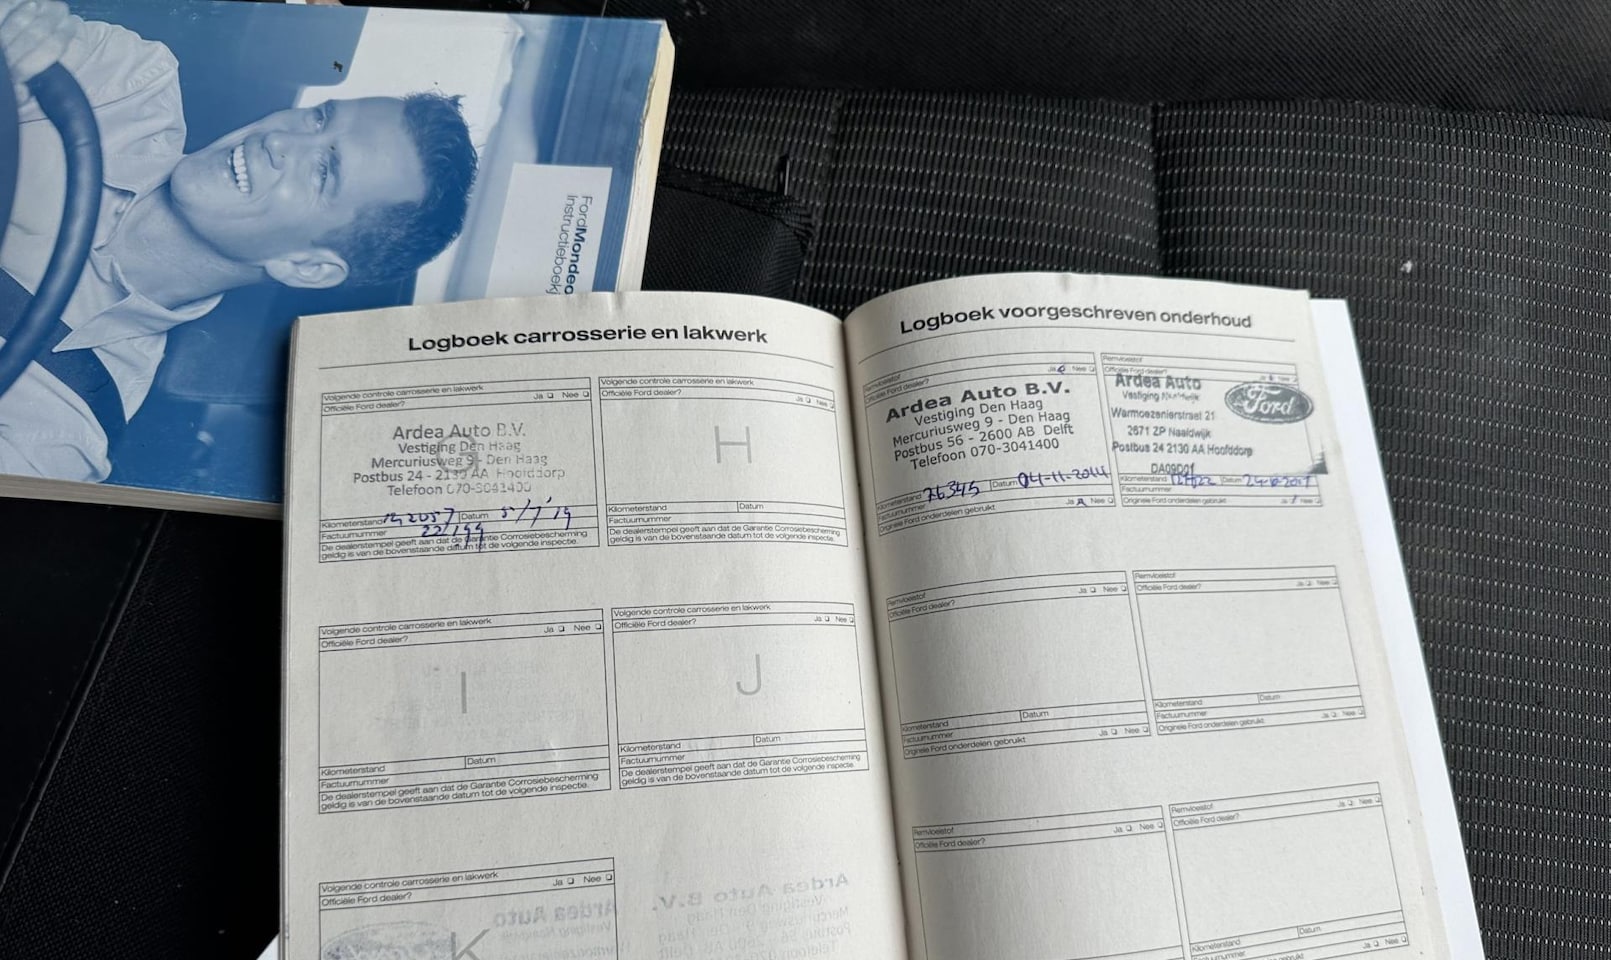 FordMondeo
Instructieboekje
Logboek carrosserie en lakwerk
Volgende controle carrosserie en lakwerk
Officiële Ford dealer? Ja Nee
G
Ardea Auto B.V.
Vestiging Den Haag
Mercuriusweg 9 - Den Haag
Postbus 24 - 2130 AA Hoofddorp
Telefoon 070-3041400
Kilometerstand Datum
Factuurnummer
De dealerstempel geeft aan dat de Garantie Corrosiebescherming
geldig is van de bovenstaande datum tot de volgende inspectie.
Volgende controle carrosserie en lakwerk
Officiële Ford dealer? Ja Nee
H
Kilometerstand Datum
Factuurnummer
De dealerstempel geeft aan dat de Garantie Corrosiebescherming
geldig is van de bovenstaande datum tot de volgende inspectie.
Volgende controle carrosserie en lakwerk
Officiële Ford dealer? Ja Nee
I
Kilometerstand Datum
Factuurnummer
De dealerstempel geeft aan dat de Garantie Corrosiebescherming
geldig is van de bovenstaande datum tot de volgende inspectie.
Volgende controle carrosserie en lakwerk
Officiële Ford dealer? Ja Nee
J
Kilometerstand Datum
Factuurnummer
De dealerstempel geeft aan dat de Garantie Corrosiebescherming
geldig is van de bovenstaande datum tot de volgende inspectie.
Volgende controle carrosserie en lakwerk
Officiële Ford dealer? Ja Nee
K
Logboek voorgeschreven onderhoud
Remvloeistof
Officiële Ford dealer? Ja Nee
Ardea Auto B.V.
Vestiging Den Haag
Mercuriusweg 9 - Den Haag
Postbus 56 - 2600 AB Delft
Telefoon 070-3041400
Kilometerstand 76345 Datum 04-11-2014
Factuurnummer
Originele Ford onderdelen gebruikt Ja Nee
Remvloeistof
Officiële Ford dealer? Ja Nee
Ardea Auto
Vestiging Naaldwijk
Warmoezenierstraat 21
2671 ZP Naaldwijk
Postbus 24 2130 AA Hoofddorp
DA09D01
Ford
Kilometerstand Datum
Factuurnummer
Originele Ford onderdelen gebruikt Ja Nee
Remvloeistof
Officiële Ford dealer? Ja Nee
Kilometerstand Datum
Factuurnummer
Originele Ford onderdelen gebruikt Ja Nee
Remvloeistof
Officiële Ford dealer? Ja Nee
Kilometerstand Datum
Factuurnummer
Originele Ford onderdelen gebruikt Ja Nee
Remvloeistof
Officiële Ford dealer? Ja Nee
Remvloeistof
Officiële Ford dealer? Ja Nee
Kilometerstand Datum
Factuurnummer
Ja Nee